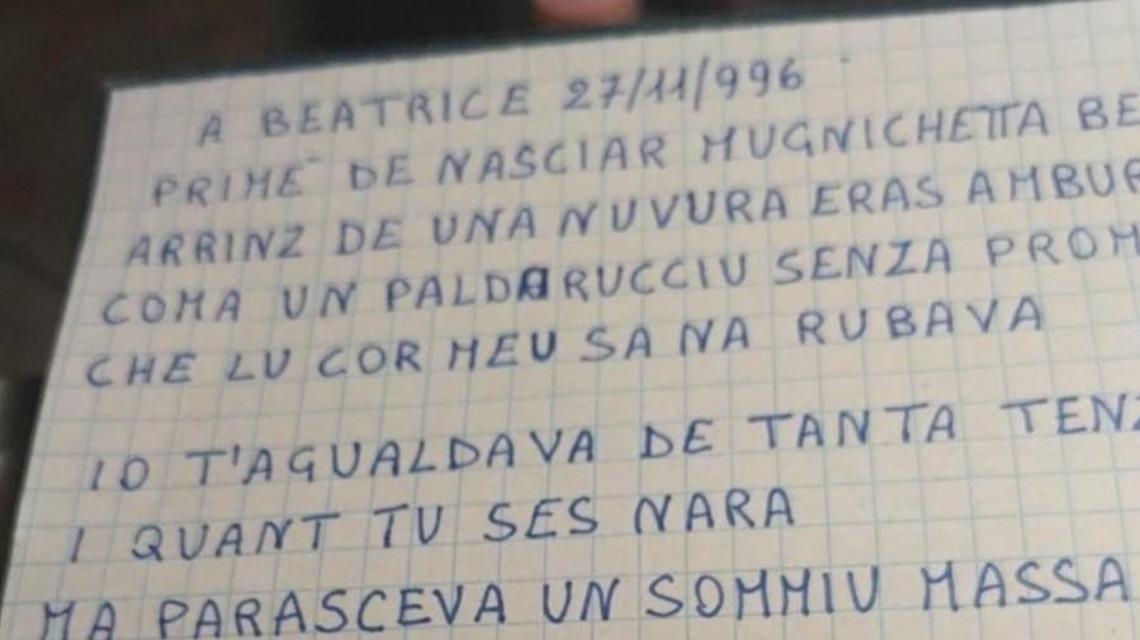 A BEATRICE 27/11/996
PRIME DE NASCIAR MUGNICHETTA
ARRINZ DE UNA NUVURA ERAS
COMA UN PALDARUCCIU SENZA
CHE LU COR MEU SA NA RUBAVA
IO T'AGUALDAVA DE TANTA
I QUANT TU SES NARA
MA PARASCEVA UN SOMMIU MASSA